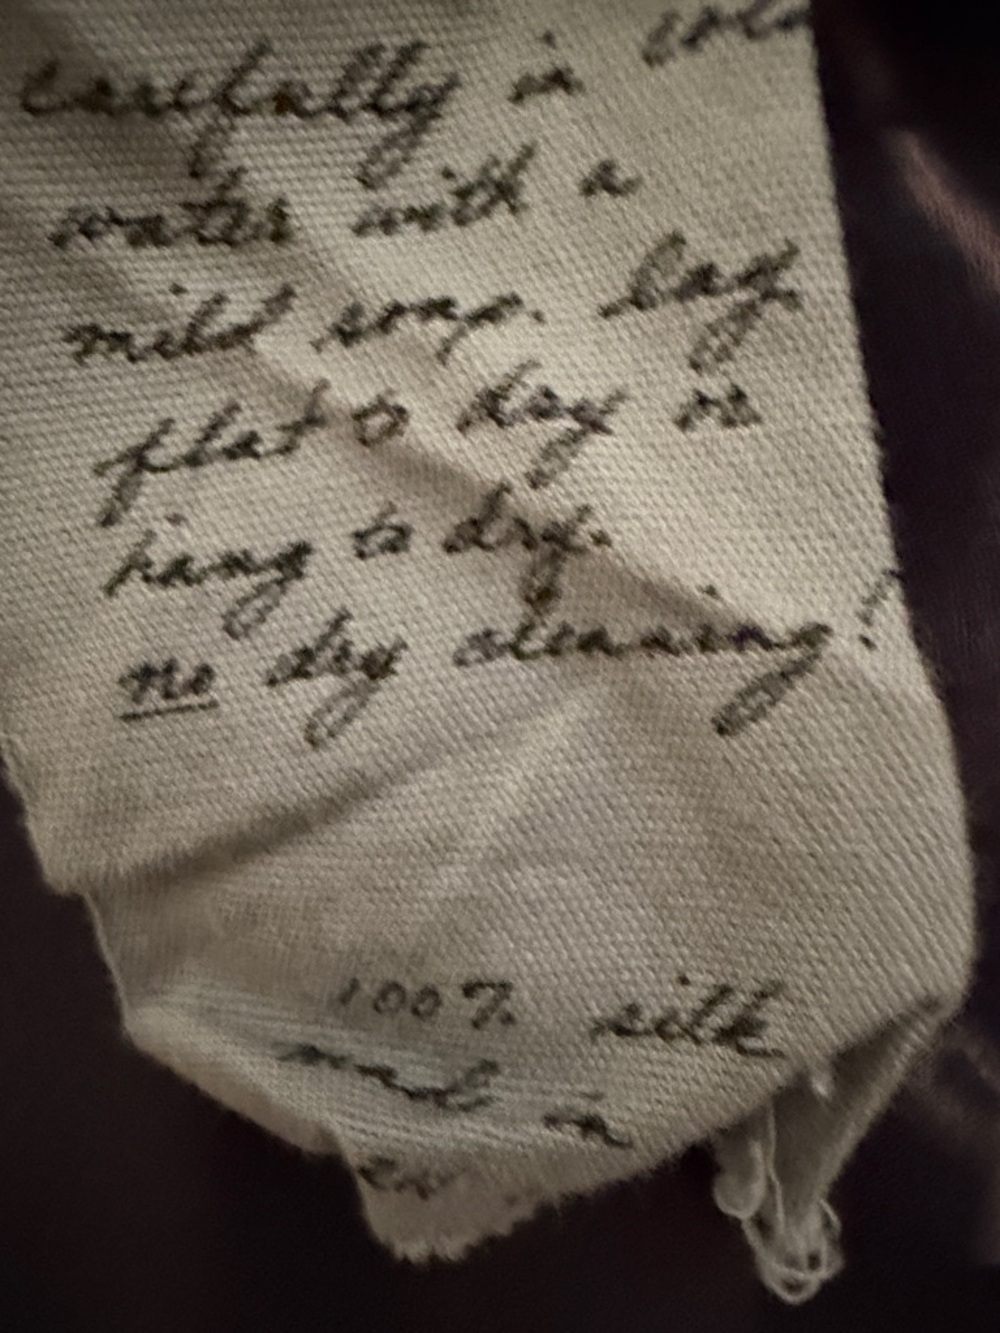 carefully in cold
water with a
mild soap. lay
flat to dry or
hang to dry.
no dry cleaning!
100% silk
made in